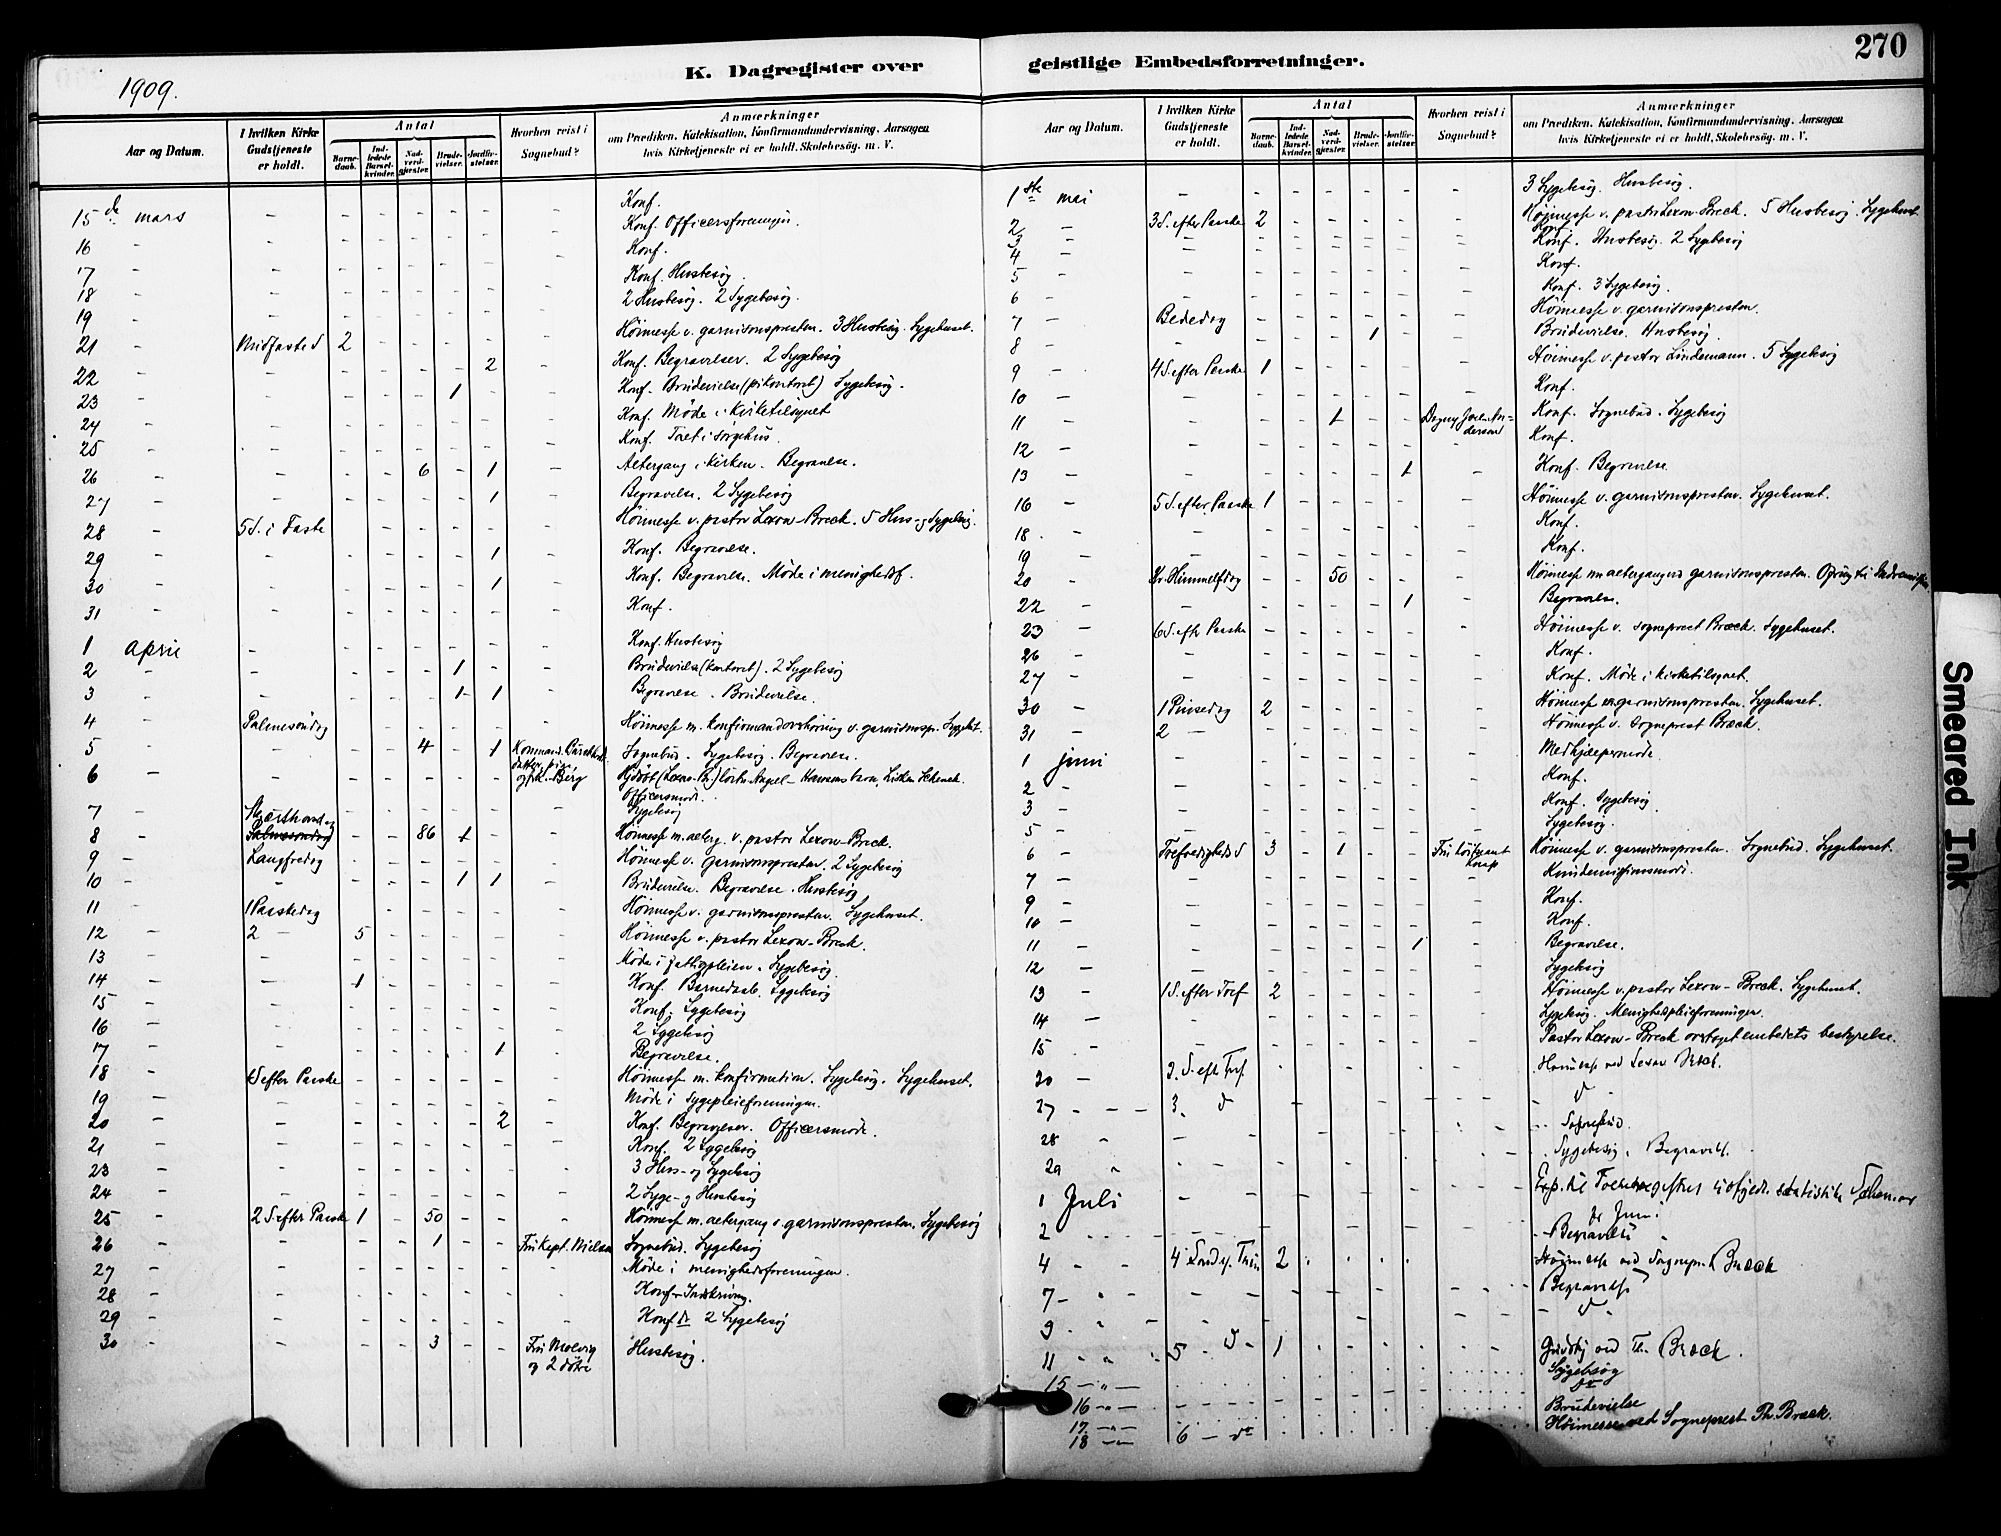 270
K. Dagregister over geistlige Embedsforretninger.
1909.
Aar og Datum. I hvilken Kirke Gudstjeneste er holdt. Antal Barnedaab. Indledede Barselkvinder. Nadverdgjæster. Brudevielser. Jordfæstelser. Hvorhen reist i Sognebud? Anmærkninger om Prædiken, Katekisation, Konfirmandundervisning, Aarsagen hvis Kirketjeneste ei er holdt, Skolebesøg. m. V.
15de mars - - - - - - - Konf.
16 - - - - - - - Konf. Officersforeningen.
17 - - - - - - - Konf.
18 - - - - - - - Konf. Husbesøg.
19 - - - - - - - 2 Husbesøg. 2 Sygebesøg.
21 - Midfaste S 2 - - - - Høimesse v. garnisonspresten. 3 Husbesøg. Sygehuset.
22 - - - - - - 2 - Konf. Begravelser. 2 Sygebesøg
23 - - - - - 1 - - Konf. Brudevielse (på kontoret) Sygebesøg.
24 - - - - - - - Konf. Møde i kirketilsynet
25 - - - - - - - Konf. i sørgehus.
26 - - - - 6 - 1 - Altergang i kirken. Begravelse.
27 - - - - - - 1 - Begravelse. 2 Sygebesøg
28 - 5 S. i Faste - - - - - Høimesse v. pastor Lexow-Bræck. 5 Hus- og Sygebesøg.
29 - - - - - - 1 - Konf. Begravelse.
30 - - - - - - 1 - Konf. Begravelse. Møde i menighedsf.
31 - - - - - - - Konf.
1 april - - - - - - - Konf. Husbesøg
2 - - - - - 1 - - Brudevielse (kontoret). 2 Sygebesøg
3 - - - - - 1 1 - Begravelse. Brudevielse.
4 - Palmesøndag - - - - - - Høimesse m. konfirmandoverhøring v. garnisonsp. Sygehuset.
5 - - - - 4 - 1 Sognebud. Sygebesøg. Begravelse.
6 - - - - - - - og frk. Berg
Officersmøde.
7 - - - - - - - Sygebesøg
8 - Skjærthorsdag - - 86 1 - - Høimesse m. alterg. v. pastor Lexow-Bræck.
9 - Langfredag - - - - - - Høimesse v. garnisonspresten. 2 Sygebesøg
10 - - - - - 1 1 - Brudevielse. Begravelse. Husbesøg
11 - 1 Paaskedag - - - - - Høimesse v. garnisonspresten. Sygehuset.
12 - 2 - 5 - - - - - Høimesse v. pastor Lexow-Bræck.
13 - - - - - - - Møde i fattigpleien. Sygebesøg.
14 - - 1 - - - - - Konf. Barnedaab. Sygebesøg
15 - - - - - - - Konf. Sygebesøg
16 - - - - - - - 2 Sygebesøg
17 - - - - - - 1 - Begravelse.
18 - 1 S efter Paaske - - - - - - Høimesse m. konfirmation. Sygebesøg. Sygehuset.
19 - - - - - - - Møde i Sygepleieforeningen.
20 - - - - - - 2 - Konf. Begravelser. Officersmøde.
21 - - - - - - - Konf. 2 Sygebesøg
23 - - - - - - - 3 Hus- og Sygebesøg
24 - - - - - - - 2 Syge- og Husbesøg
25 - 2 S. efter Paaske 1 - 50 - - - Høimesse m. altergang v. garnisonspresten. Sygebesøg
26 - - - - 1 - - Fru kapt. Nielsen Sognebud. Sygebesøg
27 - - - - - - - Møde i menighedsforeningen.
28 - - - - - - - Konf-Indskrivning.
29 - - - - - - - Konf do 2 Sygebesøg
30 - - - - 3 - - Fru Molvig og 2 døtre Husbesøg.
Aar og Datum. I hvilken Kirke Gudstjeneste er holdt. Antal Barnedaab. Indledede Barselkvinder. Nadverdgjæster. Brudevielser. Jordfæstelser. Hvorhen reist i Sognebud? Anmærkninger om Prædiken, Katekisation, Konfirmandundervisning, Aarsagen hvis Kirketjeneste ei er holdt, Skolebesøg. m. V.
1ste mai - - - - - - - 3 Sygebesøg. Husbesøg.
2 - 3 S. efter Paaske 2 - - - - - Høimesse v. pastor Lexow-Bræck. 5 Husbesøg. Sygehuset.
3 - - - - - - - Konf.
4 - - - - - - - Konf. Husbesøg. 2 Sygebesøg
5 - - - - - - - Konf.
6 - - - - - - - Konf. 3 Sygebesøg.
7 - Bededag - - - - - - Høimesse v. garnisonspresten.
8 - - - - - 1 - - Brudevielse. Husbesøg.
9 - 4 S. efter Paaske 1 - - - - - Høimesse v. pastor Lindemann. 5 Sygebesøg
10 - - - - - - - Konf.
11 - - - - 1 - - Konf. Sognebud. Sygebesøg
12 - - - - - - - Konf.
13 - - - - - - 1 - Konf. Begravelse
16 - 5 S. efter Paaske 1 - - - - - Høimesse v. garnisonspresten. Sygehuset.
18 - - - - - - - Konf.
19 - - - - - - - Konf.
20 - Kr. Himmelfdag - - 50 - - - Høimesse m altergang ved garnisonspresten.
22 - - - - - - 1 - Begravelse.
23 - 6 S. eftr Paaske - - - - - - Høimesse v. sogneprest Bræck. Sygehuset.
26 - - - - - - - Konf.
27 - - - - - - - Konf. Møde i kirketilsynet.
30 - 1 Pinsedag 2 - - - - - Høimesse v. garnisonspresten. Sygehuset.
31 - 2 - - - - - - - Høimesse v. sogneprest Bræck.
1 juni - - - - - - - Medhjælpermøde.
2 - - - - - - - Konf.
3 - - - - - - - Konf. Sygebesøg
5 - - - - - - - Sygebesøg.
6 - Trefoldigheds S 3 - 1 - - Høimesse v. garnisonspresten. Sognebud. Sygehuset.
7 - - - - - - - Kvindemissionsmøde.
9 - - - - - - - Konf.
10 - - - - - - - Konf.
11 - - - - - - 1 - Begravelse.
12 - - - - - - - Sygebesøg
13 - 1 S. efter Tref 2 - - - - - Høimesse v. pastor Lexow-Bræck. Sygehuset.
14 - - - - - - - Sygebesøg. Menighedspleieforeningen.
15 - - - - - - - Pastor Lexow-Bræck overtaget embedets bestyrelse.
20 - 2. S. eftr Tref. - - - - - - Høimesse ved Lexow Bræck.
27 - 3. d - - - - - - d
28 - - - - - - - Sognebud.
29 - - - - - - - Sygebesøg. Begravelse.
1 Juli - - - - - - - Exp. til
for Juni.
2 - - - - - - - Begravelse
4 - 4 2 - - - - - Høimesse ved Sognepr. Bræck
7 - - - - - - - Begravelse
9 - - - - - - - d
11 - 5 - d - 1 - - - - - Gudstj ved Th. Bræck.
15 - - - - - - - Sygebesøg
16 - - - - - - - do
17. - - - - - - - Brudevielse
18 - 6 - do - - - - - - Høimesse ved Sogneprest Th. Bræck.
Smeared Ink